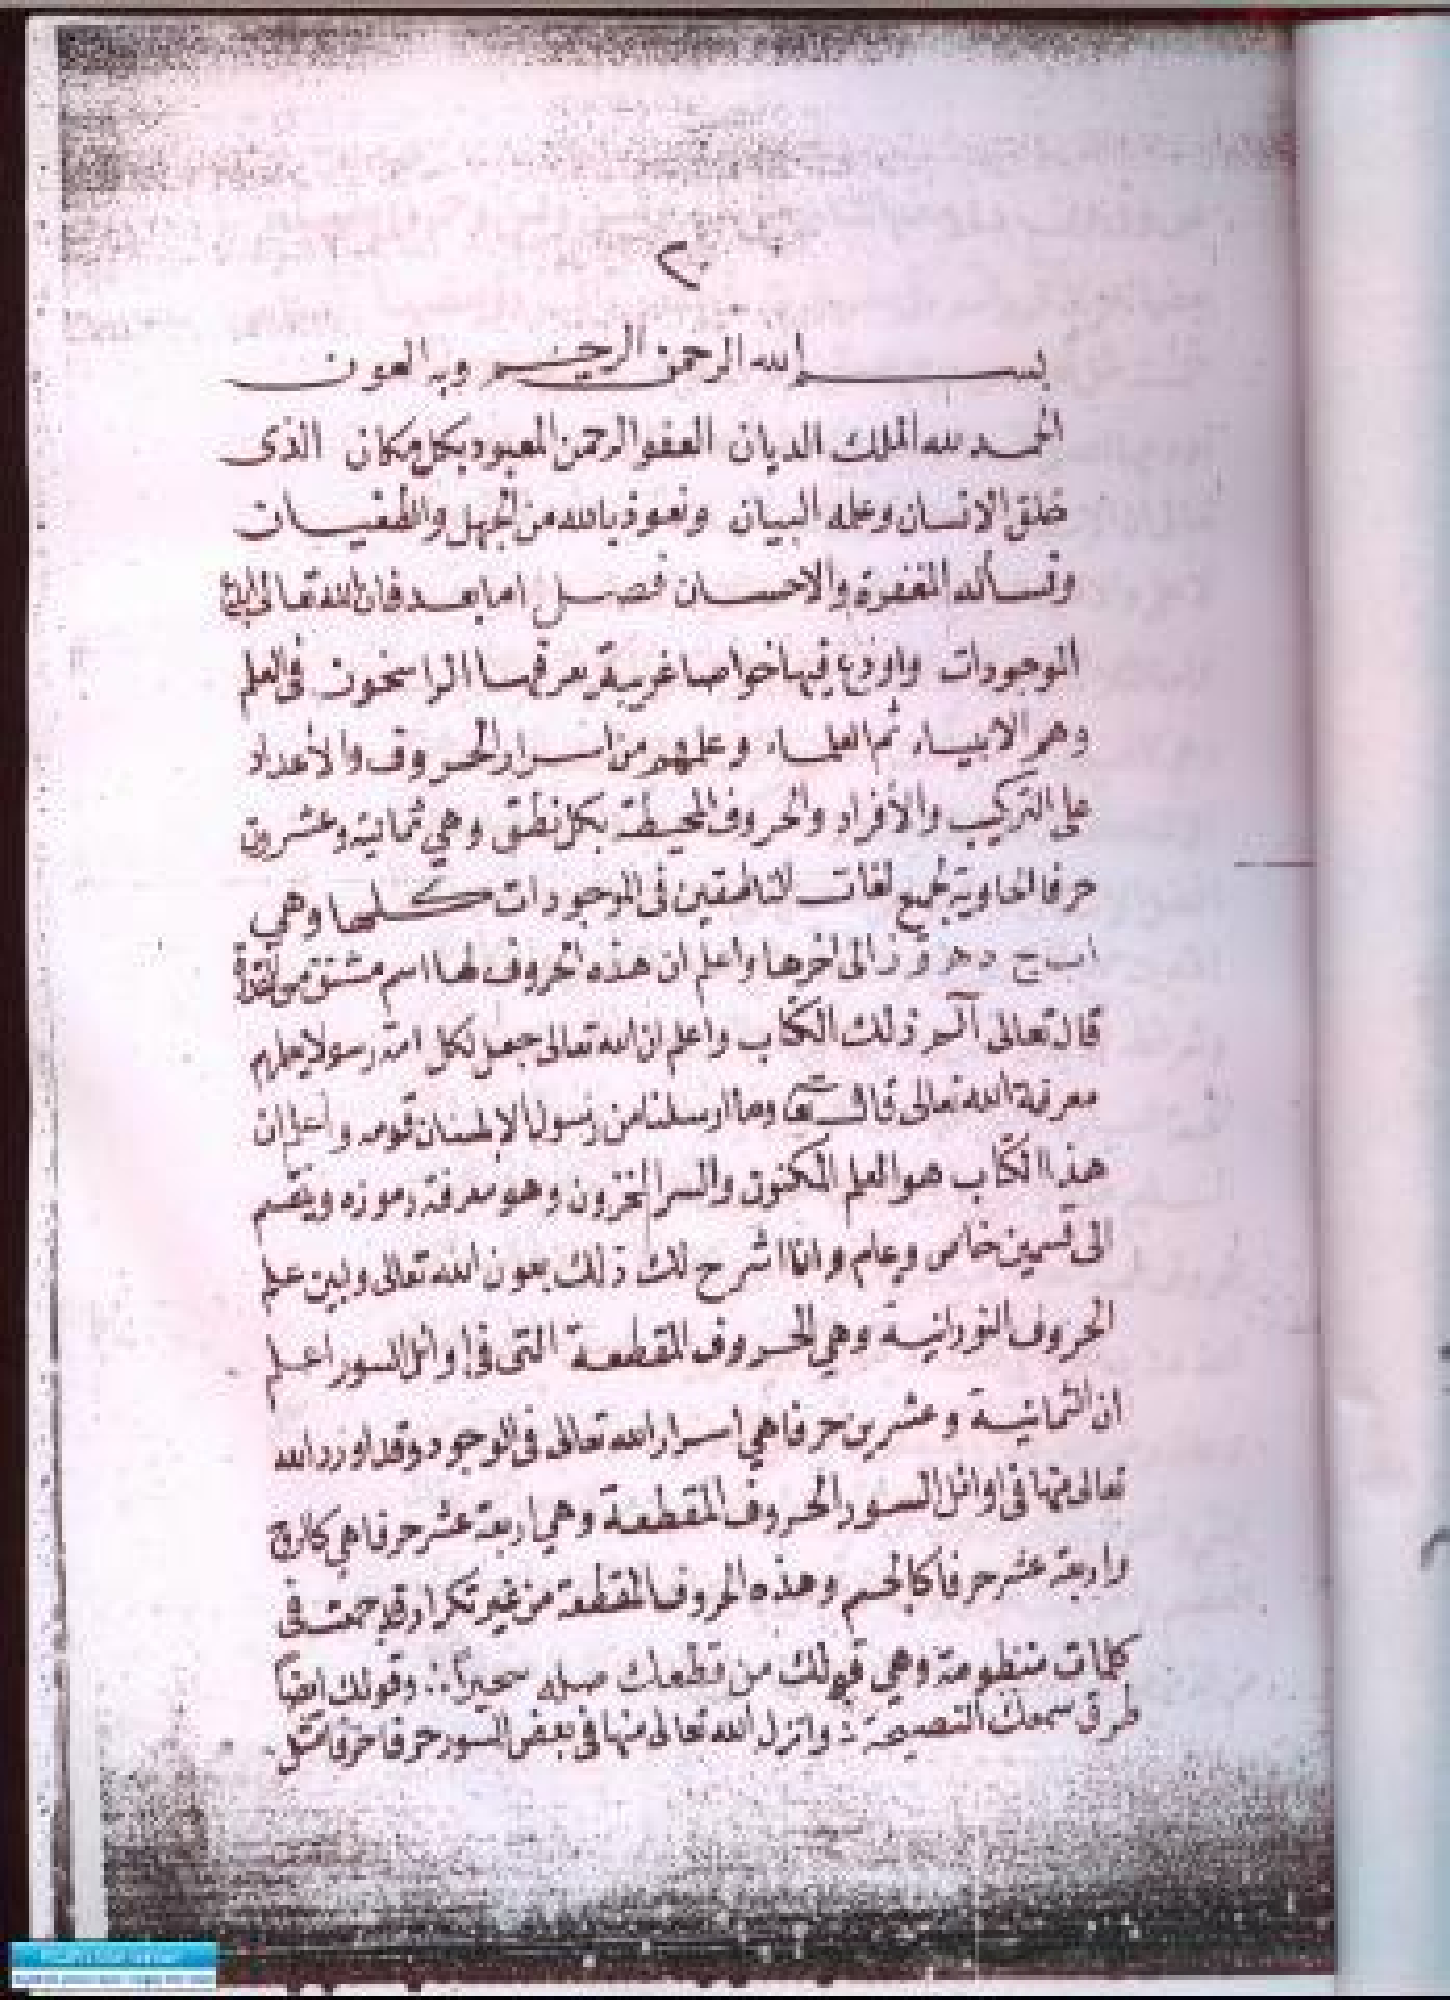 ٢
بسم الله الرحمن الرحيم وبه العون
الحمد لله الملك الديان العفو الرحمن المعبود بكل مكان الذى
خلق الإنسان وعلمه البيان ونعوذ بالله من الجهل والطغيان
ونسأله المغفرة والاحسان فصل اما بعد فان الله تعالى
الموجودات واودع فيها خواصا غريبة يعرفها الراسخون في العلم
وهم الانبياء ثم العلماء وعلمهم من اسرار الحروف والأعداد
على التركيب والأفراد والحروف المحيطة بكل نطق وهي ثمانية وعشرين
حرفا الحاوية لجميع لغات الناطقين فى الموجودات كلها وهي
ا ب ج د ه و ز الى اخرها واعلم ان هذه الحروف لها اسم مشتق من
قال تعالى آلم ذلك الكتاب واعلم ان الله تعالى جعل لكل امة رسولا يعلمهم
معرفة الله تعالى قال وما ارسلنا من رسول الا بلسان قومه واعلم ان
هذا الكتاب هو العلم المكنون والسر المخزون وهو معرفة رموزه وينقسم
الى قسمين خاص وعام وانا اشرح لك ذلك بعون الله تعالى ونبين علم
الحروف النورانية وهي الحروف المقطعة التى فى اوائل السور اعلم
ان الثمانية وعشرين حرفا هي اسرار الله تعالى فى الوجود وقد اورد الله
تعالى منها فى اوائل السور الحروف المقطعة وهي اربعة عشر حرفا هي كالروح
واربعة عشر حرفا كالجسم وهذه الحروف المقطعة من غير تكرار قد جمعت في
كلمات منظومة وهي قولك من قطعك صله سحيرا وقولك ايضاً
طرق سمعك النصيحة وانزل الله تعالى منها في بعض السور حرفا حرفا مثل